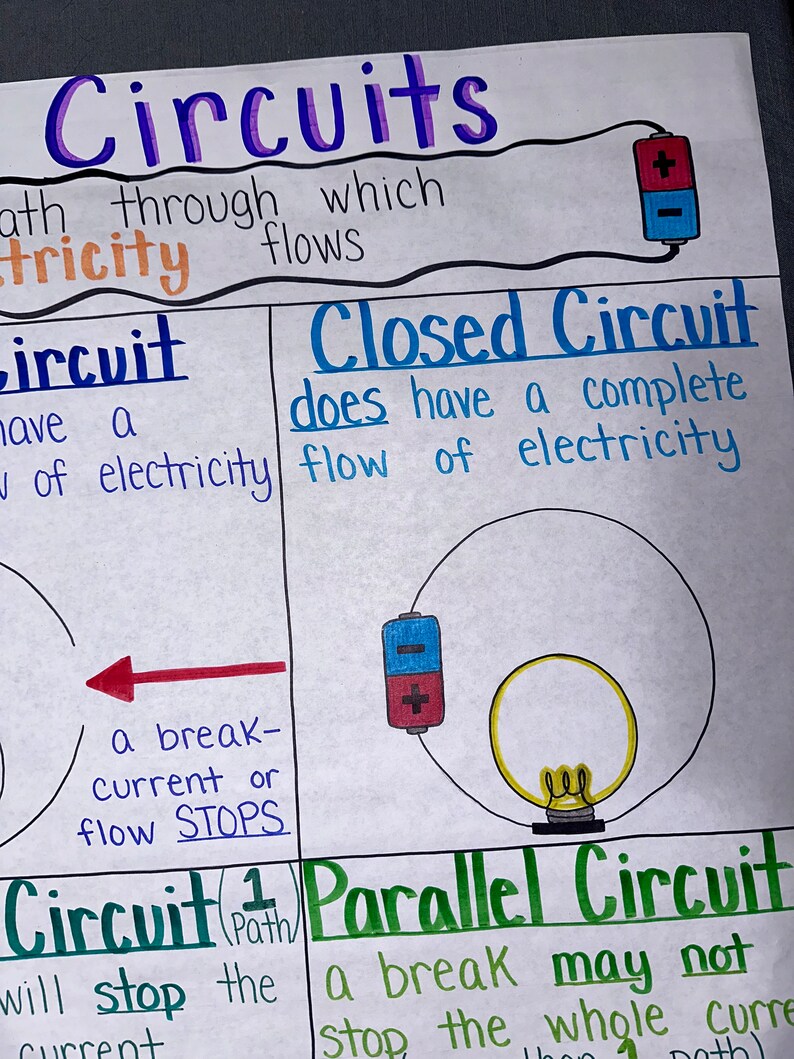 Circuits
ath through which
tricity flows
+
-
Circuit
have a
of electricity
Closed Circuit
does have a complete
flow of electricity
-
+
a break-
current or
flow STOPS
Circuit (1
Path)
will stop the
current
Parallel Circuit
a break may not
stop the whole curre
than 1 path)